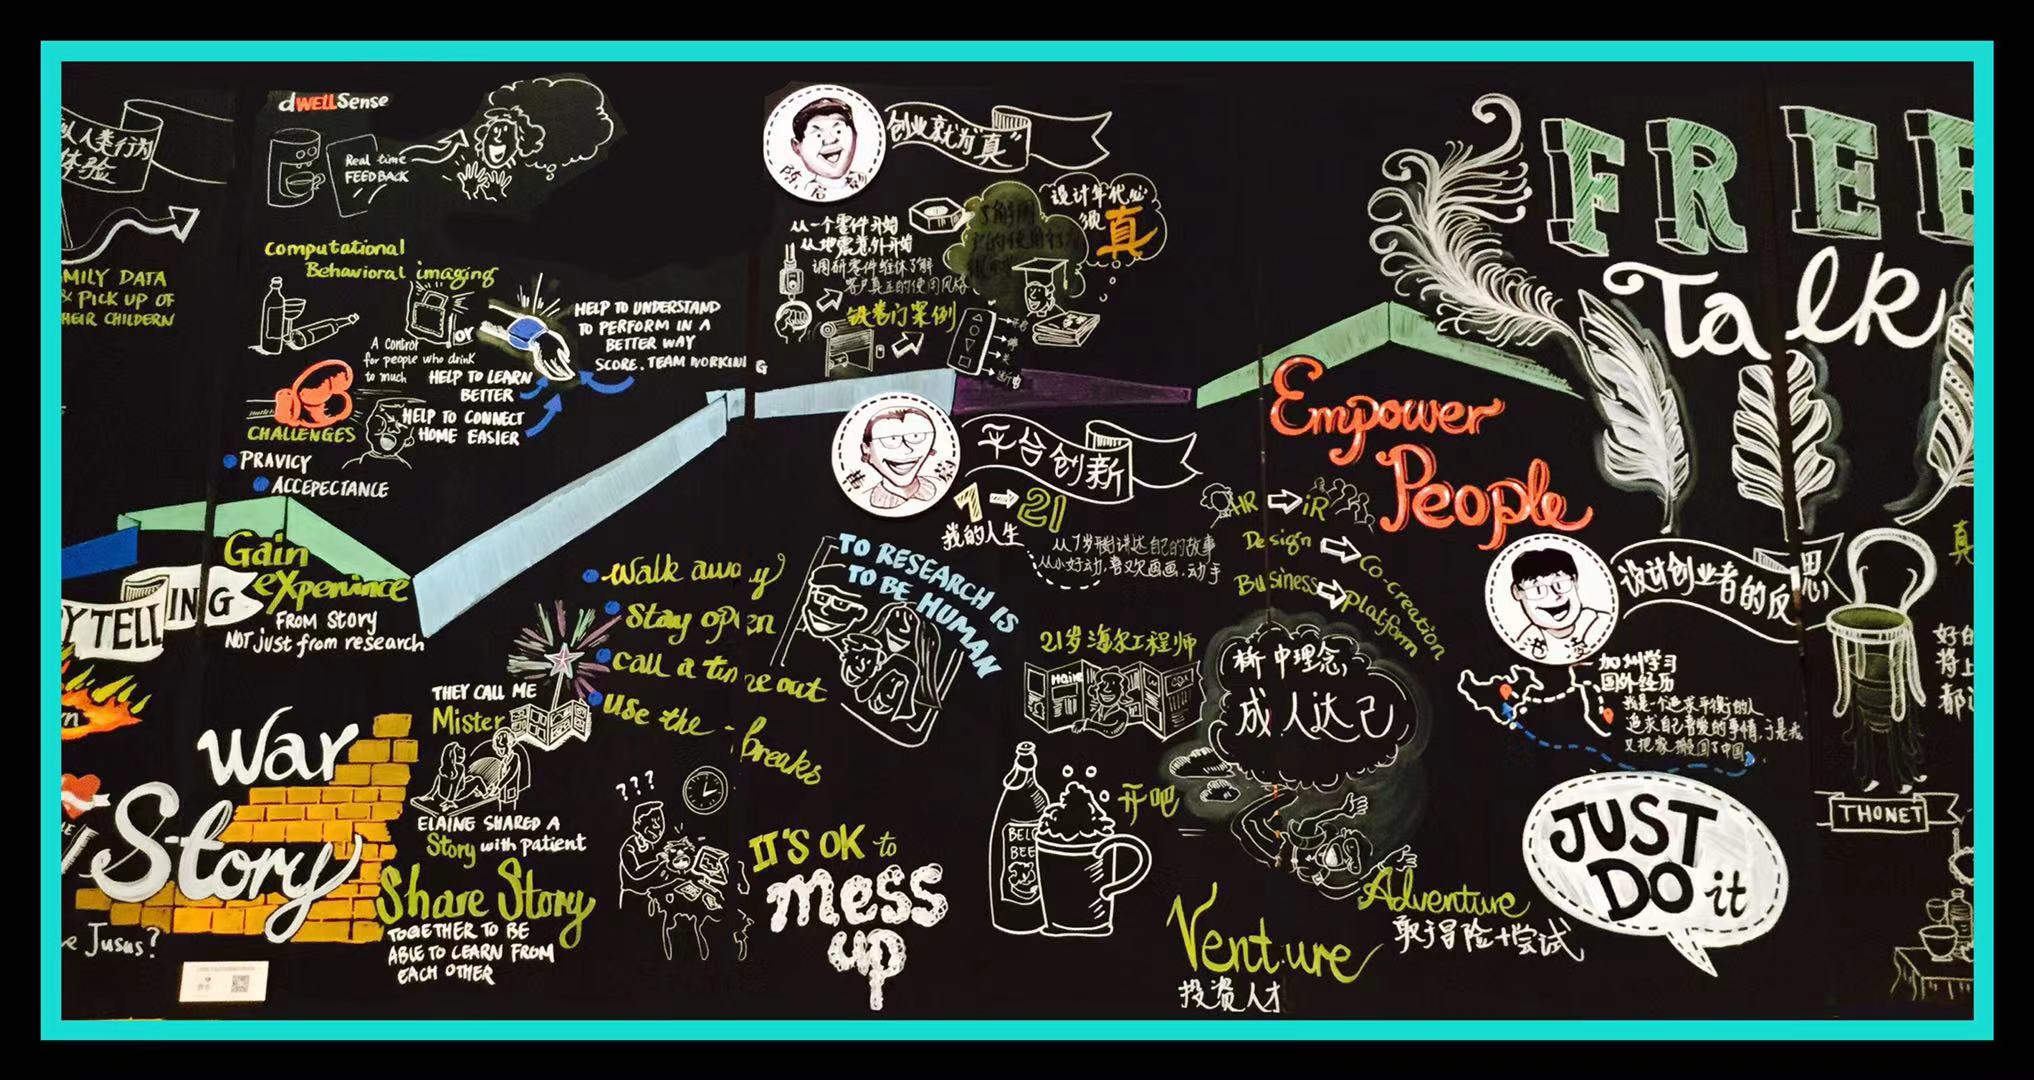 人类行为
体验
MILY DATA
& PICK UP OF
HEIR CHILDERN
YTELLING
dWELLSense
Real time
FEEDBACK
Computational
Behavioral imaging
A Control
for people who drink
to much
or
HELP TO UNDERSTAND
TO PERFORM IN A
BETTER WAY
SCORE. TEAM WORKING
HELP TO LEARN
BETTER
HELP TO CONNECT
HOME EASIER
CHALLENGES
PRAVICY
ACCEPECTANCE
Gain
eXperince
FROM Story
NOT just from research
War
Story
e Jusus?
THEY CALL ME
Mister
ELAINE SHARED A
Story with patient
Share Story
TOGETHER TO BE
ABLE TO LEARN FROM
EACH OTHER
Walk away
Stay open
call a time out
use the breaks
???
IT'S OK to
mess
up
创业就为"真"
从一个零件开始
从地震意外开始
调研零件维休了解
客户真正的使用风格
设计年代必
须真
锁卷门案例
平台创新
1 21
我的人生
从1岁开始讲述自己的故事
从小好动,喜欢画画,动手
TO RESEARCH IS
TO BE HUMAN
21岁海尔工程师
Haire
BEER
开吧
FREE
Talk
Empower
People
HR iR
Design Co-creation
Business platform
桥中理念,
成人达己
Venture
投资人才
Adventure
敢于冒险+尝试
设计创业者的反思
加州学习
国外经历
我是一个追求平衡的人
追求自己喜爱的事情,于是我
又把家搬回了中国
JUST
DO it
THONET
真
好的
将上
都